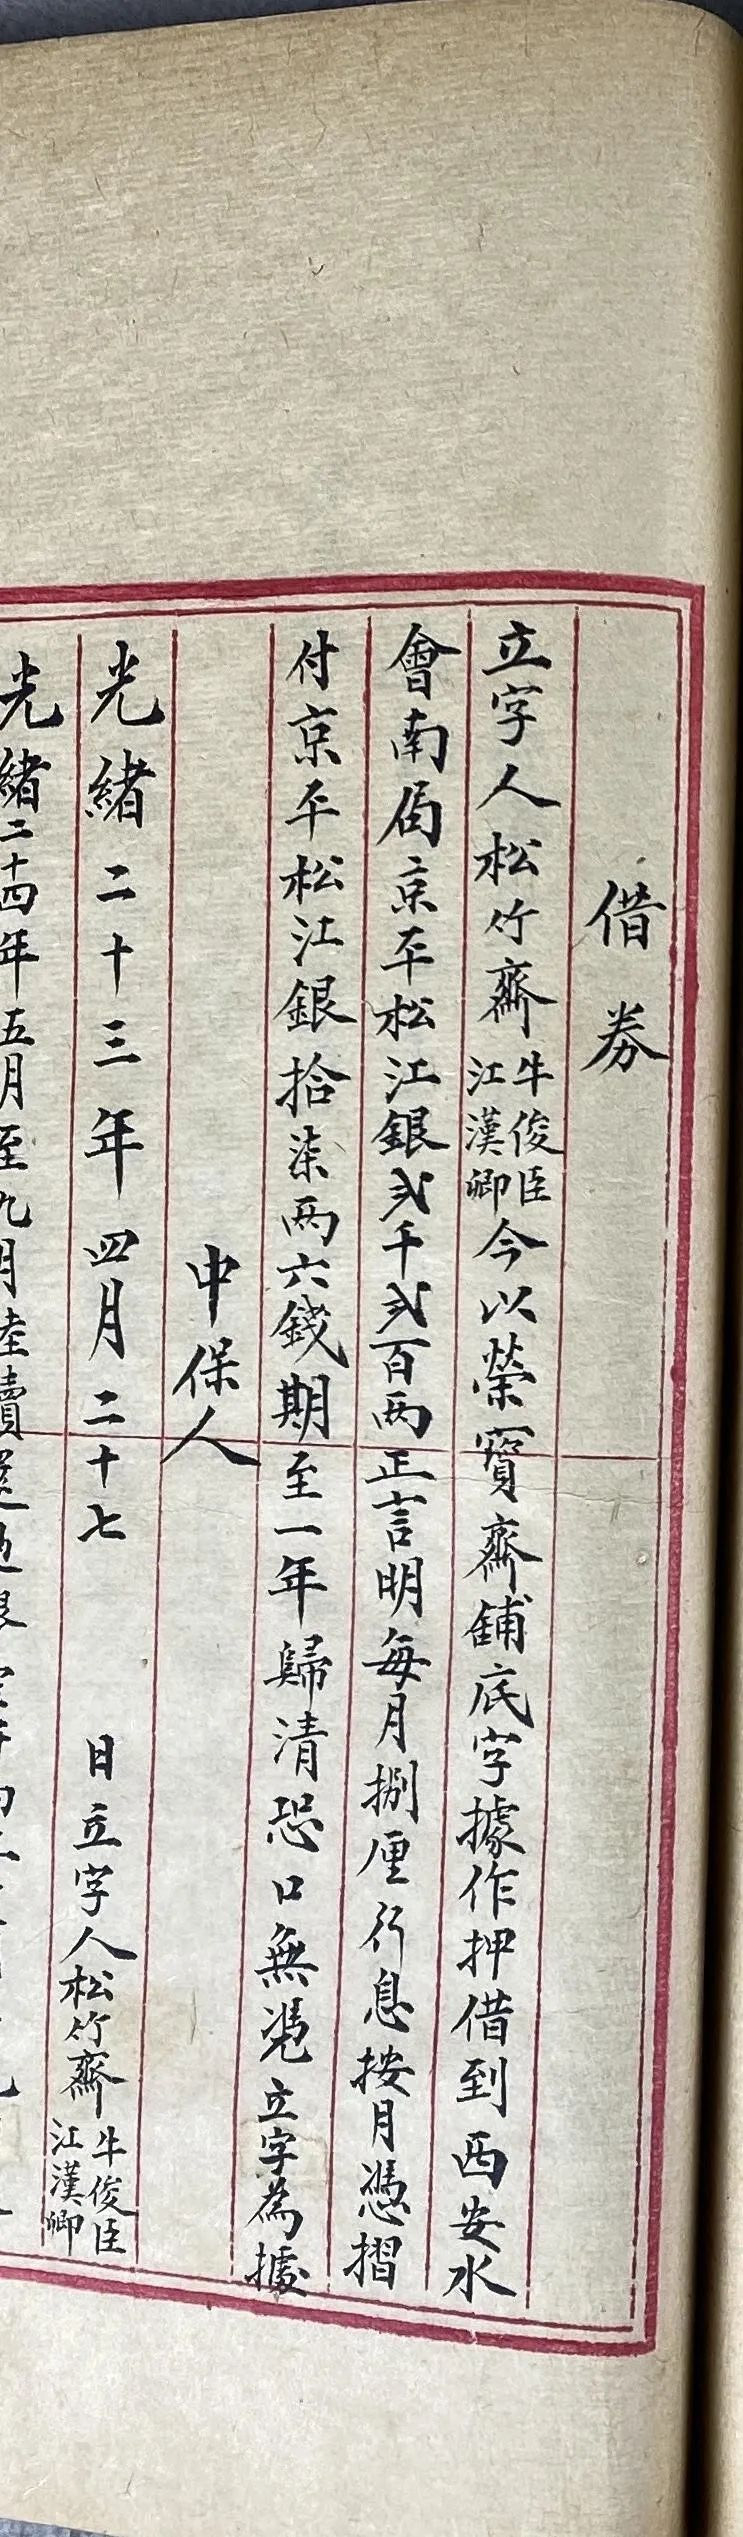 借券
立字人松竹齋牛俊臣江漢卿今以榮寳齋鋪底字據作押借到西安水
會南局京平松江銀弍千弍百両正言明每月捌厘行息按月憑摺
付京平松江銀拾柒両六錢期至一年歸清恐口無凴立字為據
中保人
光緒二十三年四月二十七日立字人松竹齋牛俊臣江漢卿
光緒二十四年五月至九月陸續還